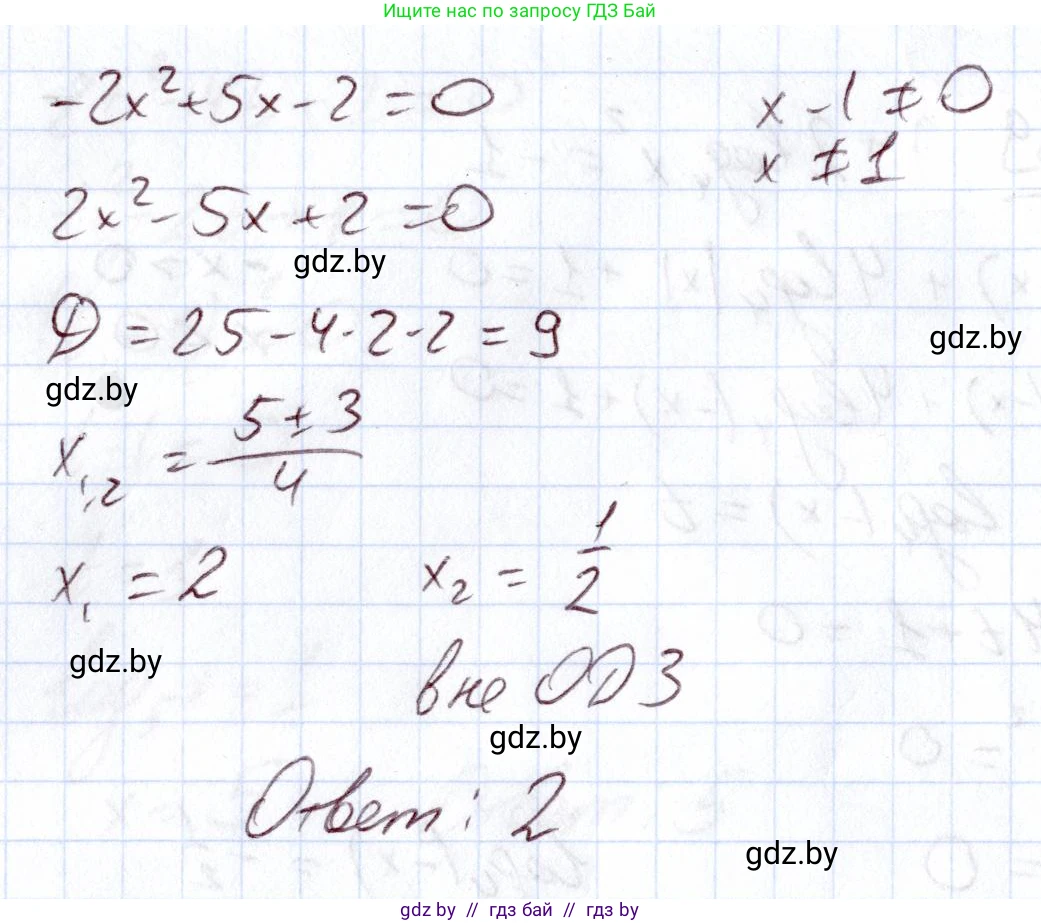 Ищите нас по запросу ГДЗ Бай
-2x²+5x-2=0
x-1≠0
x≠1
2x²-5x+2=0
gdz.by
D=25-4·2·2=9
gdz.by
gdz.by
x₁,₂ = (5±3)/4
x₁ = 2
x₂ = 1/2
gdz.by
вне ОДЗ
gdz.by
Ответ: 2
gdz.by
gdz by // гдз бай // гдз by